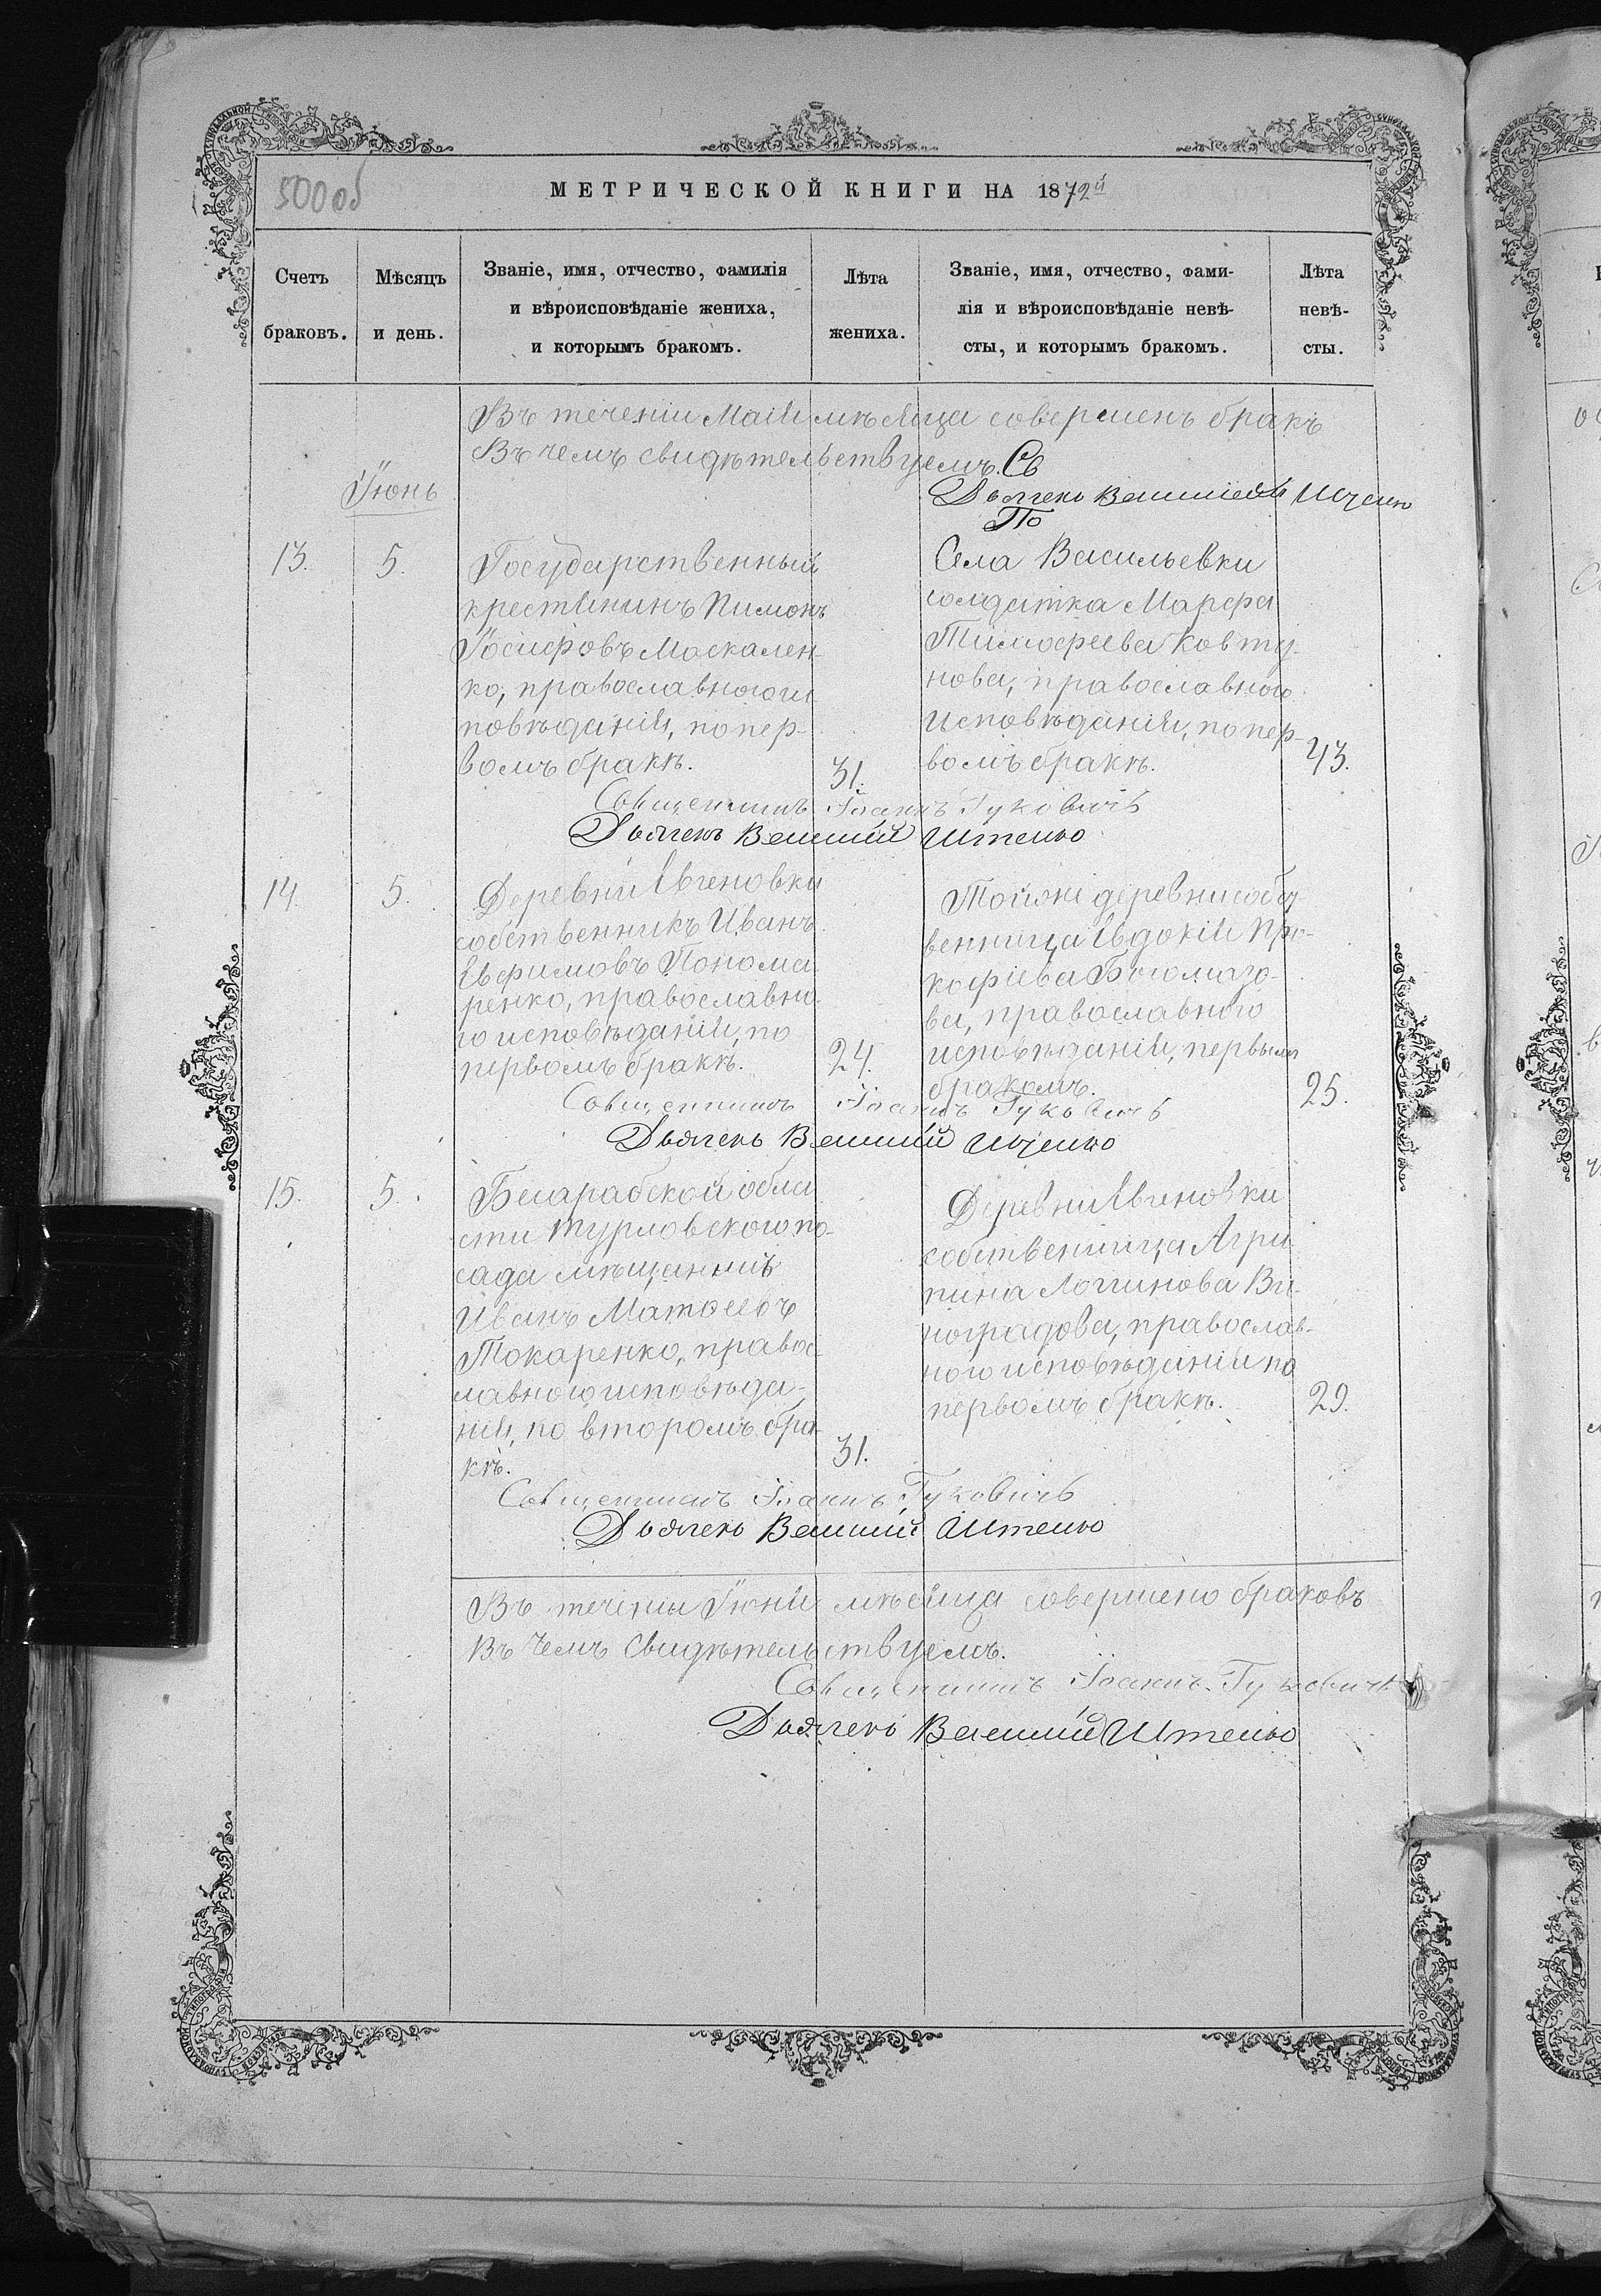 500 об
МЕТРИЧЕСКОЙ КНИГИ НА 1872й
Счетъ
браковъ.
Мѣсяцъ
и день.
Званіе, имя, отчество, фамилія
и вѣроисповѣданіе жениха,
и которымъ бракомъ.
Лѣта
жениха.
Званіе, имя, отчество, фами-
лія и вѣроисповѣданіе невѣ-
сты, и которымъ бракомъ.
Лѣта
невѣ-
сты.
Въ теченіи Маія мѣсяца совершенъ бракъ
Въ чемъ свидѣтельствуемъ. Св
Дьячекъ Василій
Іюнь
По
13.
5.
Государственный
крестьянинъ Пимонъ
Іосифовъ Москален-
ко, православного ис
повѣданія, по пер-
вомъ бракѣ.
31.
Села Васильевки
солдатка Марфа
Тимофеева Ковту-
нова, православного
исповѣданія, по пер-
вомъ бракѣ.
43.
Священникъ Іоаннъ Гуковичъ
Дьячекъ Василій
14.
5.
Деревни Евгеновки
собственникъ Иванъ
Евфимовъ Понома
ренко, православно
го исповѣданія, по
первомъ бракѣ.
24.
Тойже деревни собст
венница Евдокія Про-
кофіева
ва, православного
исповѣданія, первымъ
бракомъ.
25.
Священникъ Іоаннъ Гуковичъ
Дьячекъ Василій
15.
5.
Бесарабской обла
сти Турловского по-
сада мѣщанинъ
Иванъ
Токаренко, правос-
лавного исповѣда-
нія, по второмъ бра-
кѣ.
31.
Деревни Евгеновки
собственница Агри-
пина Логинова Ви-
ноградова, православ-
ного исповѣданія по
первомъ бракѣ.
29.
Священникъ Іоаннъ Гуковичъ
Дьячекъ Василій
Въ теченіи Іюня мѣсяца совершено браковъ
Въ чемъ свидѣтельствуемъ.
Священникъ Іоаннъ Гуковичъ
Дьячекъ Василій